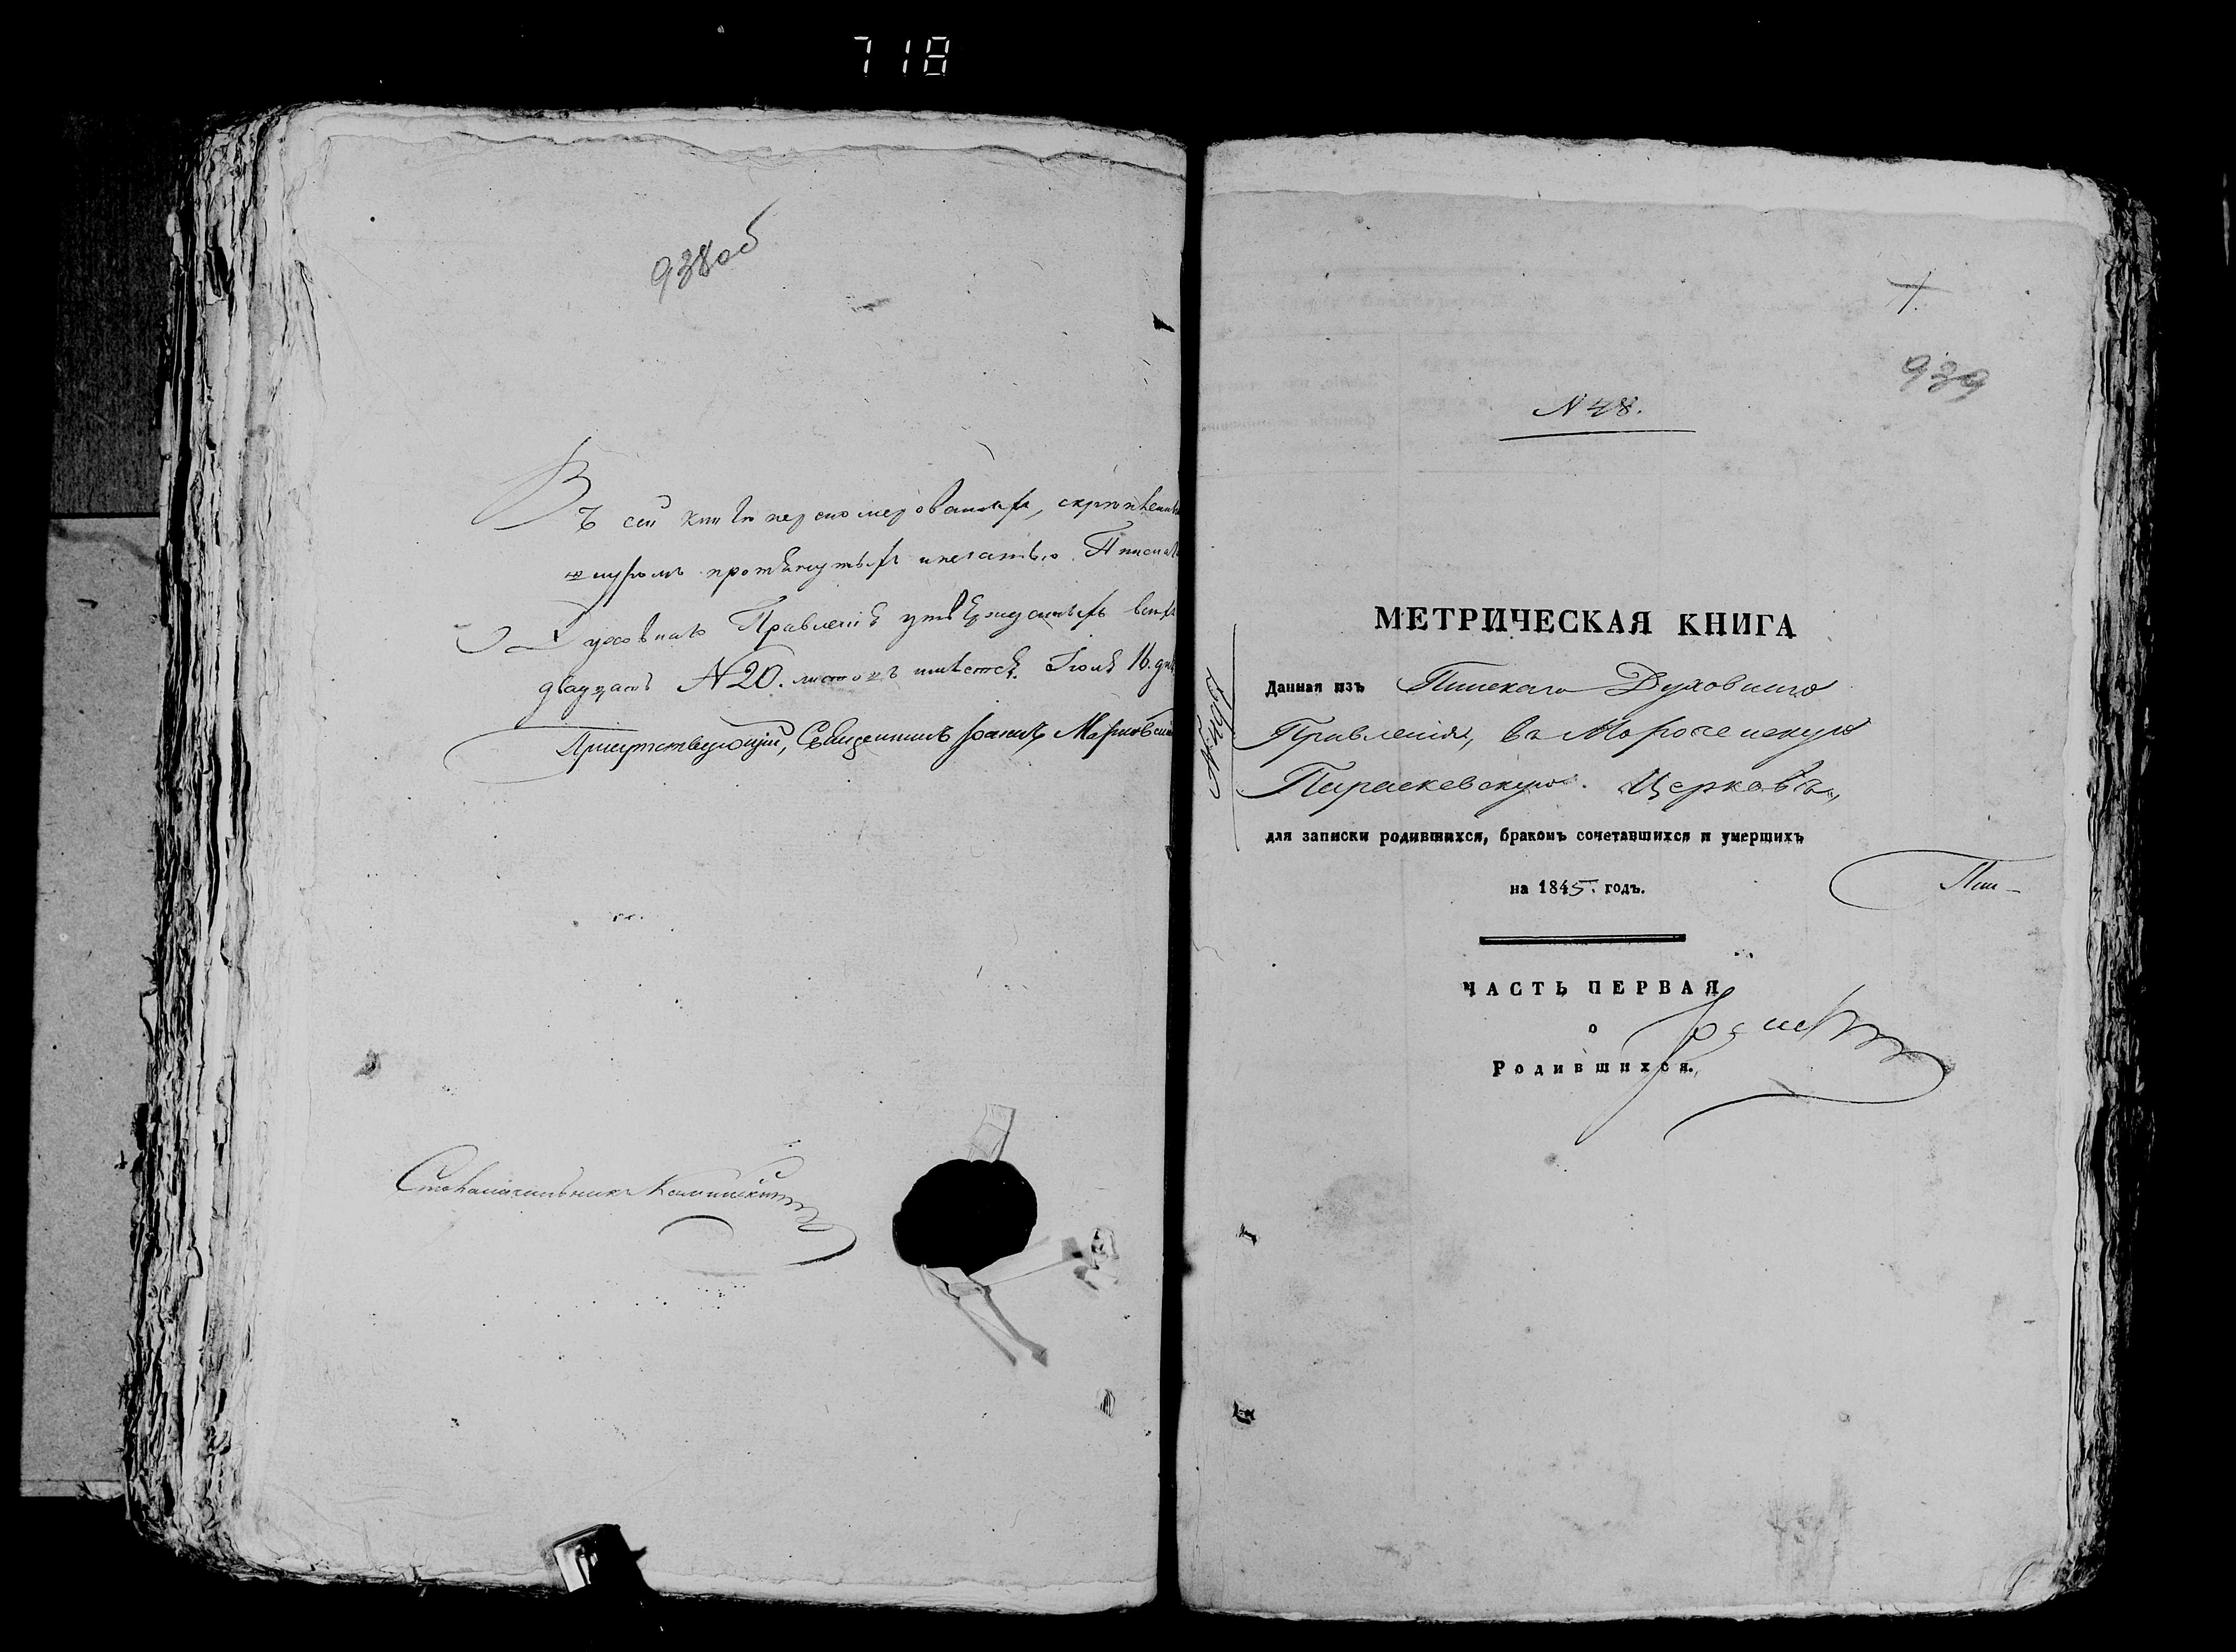 718
938об
Въ сей книгѣ перенумерованныхъ, скрѣпленны
шнуромъ протянутыхъ и печатью Пинска
Духовнаго Правленія утвержденныхъ всѣхъ
двадцать N 20. листовъ имѣется. Іюля 16. дня
Присутствующій, Священникъ Іоаннъ
Столоначальникъ
1.
939
N 48.
МЕТРИЧЕСКАЯ КНИГА
Данная изъ Пинскаго Духовнаго
Правленія, въ Мороченскую
Параскевскую Церковь,
для записки родившихся, бракомъ сочетавшихся и умершихъ
на 1845. годъ.
Пин-
ЧАСТЬ ПЕРВАЯ
о
Родившихся.